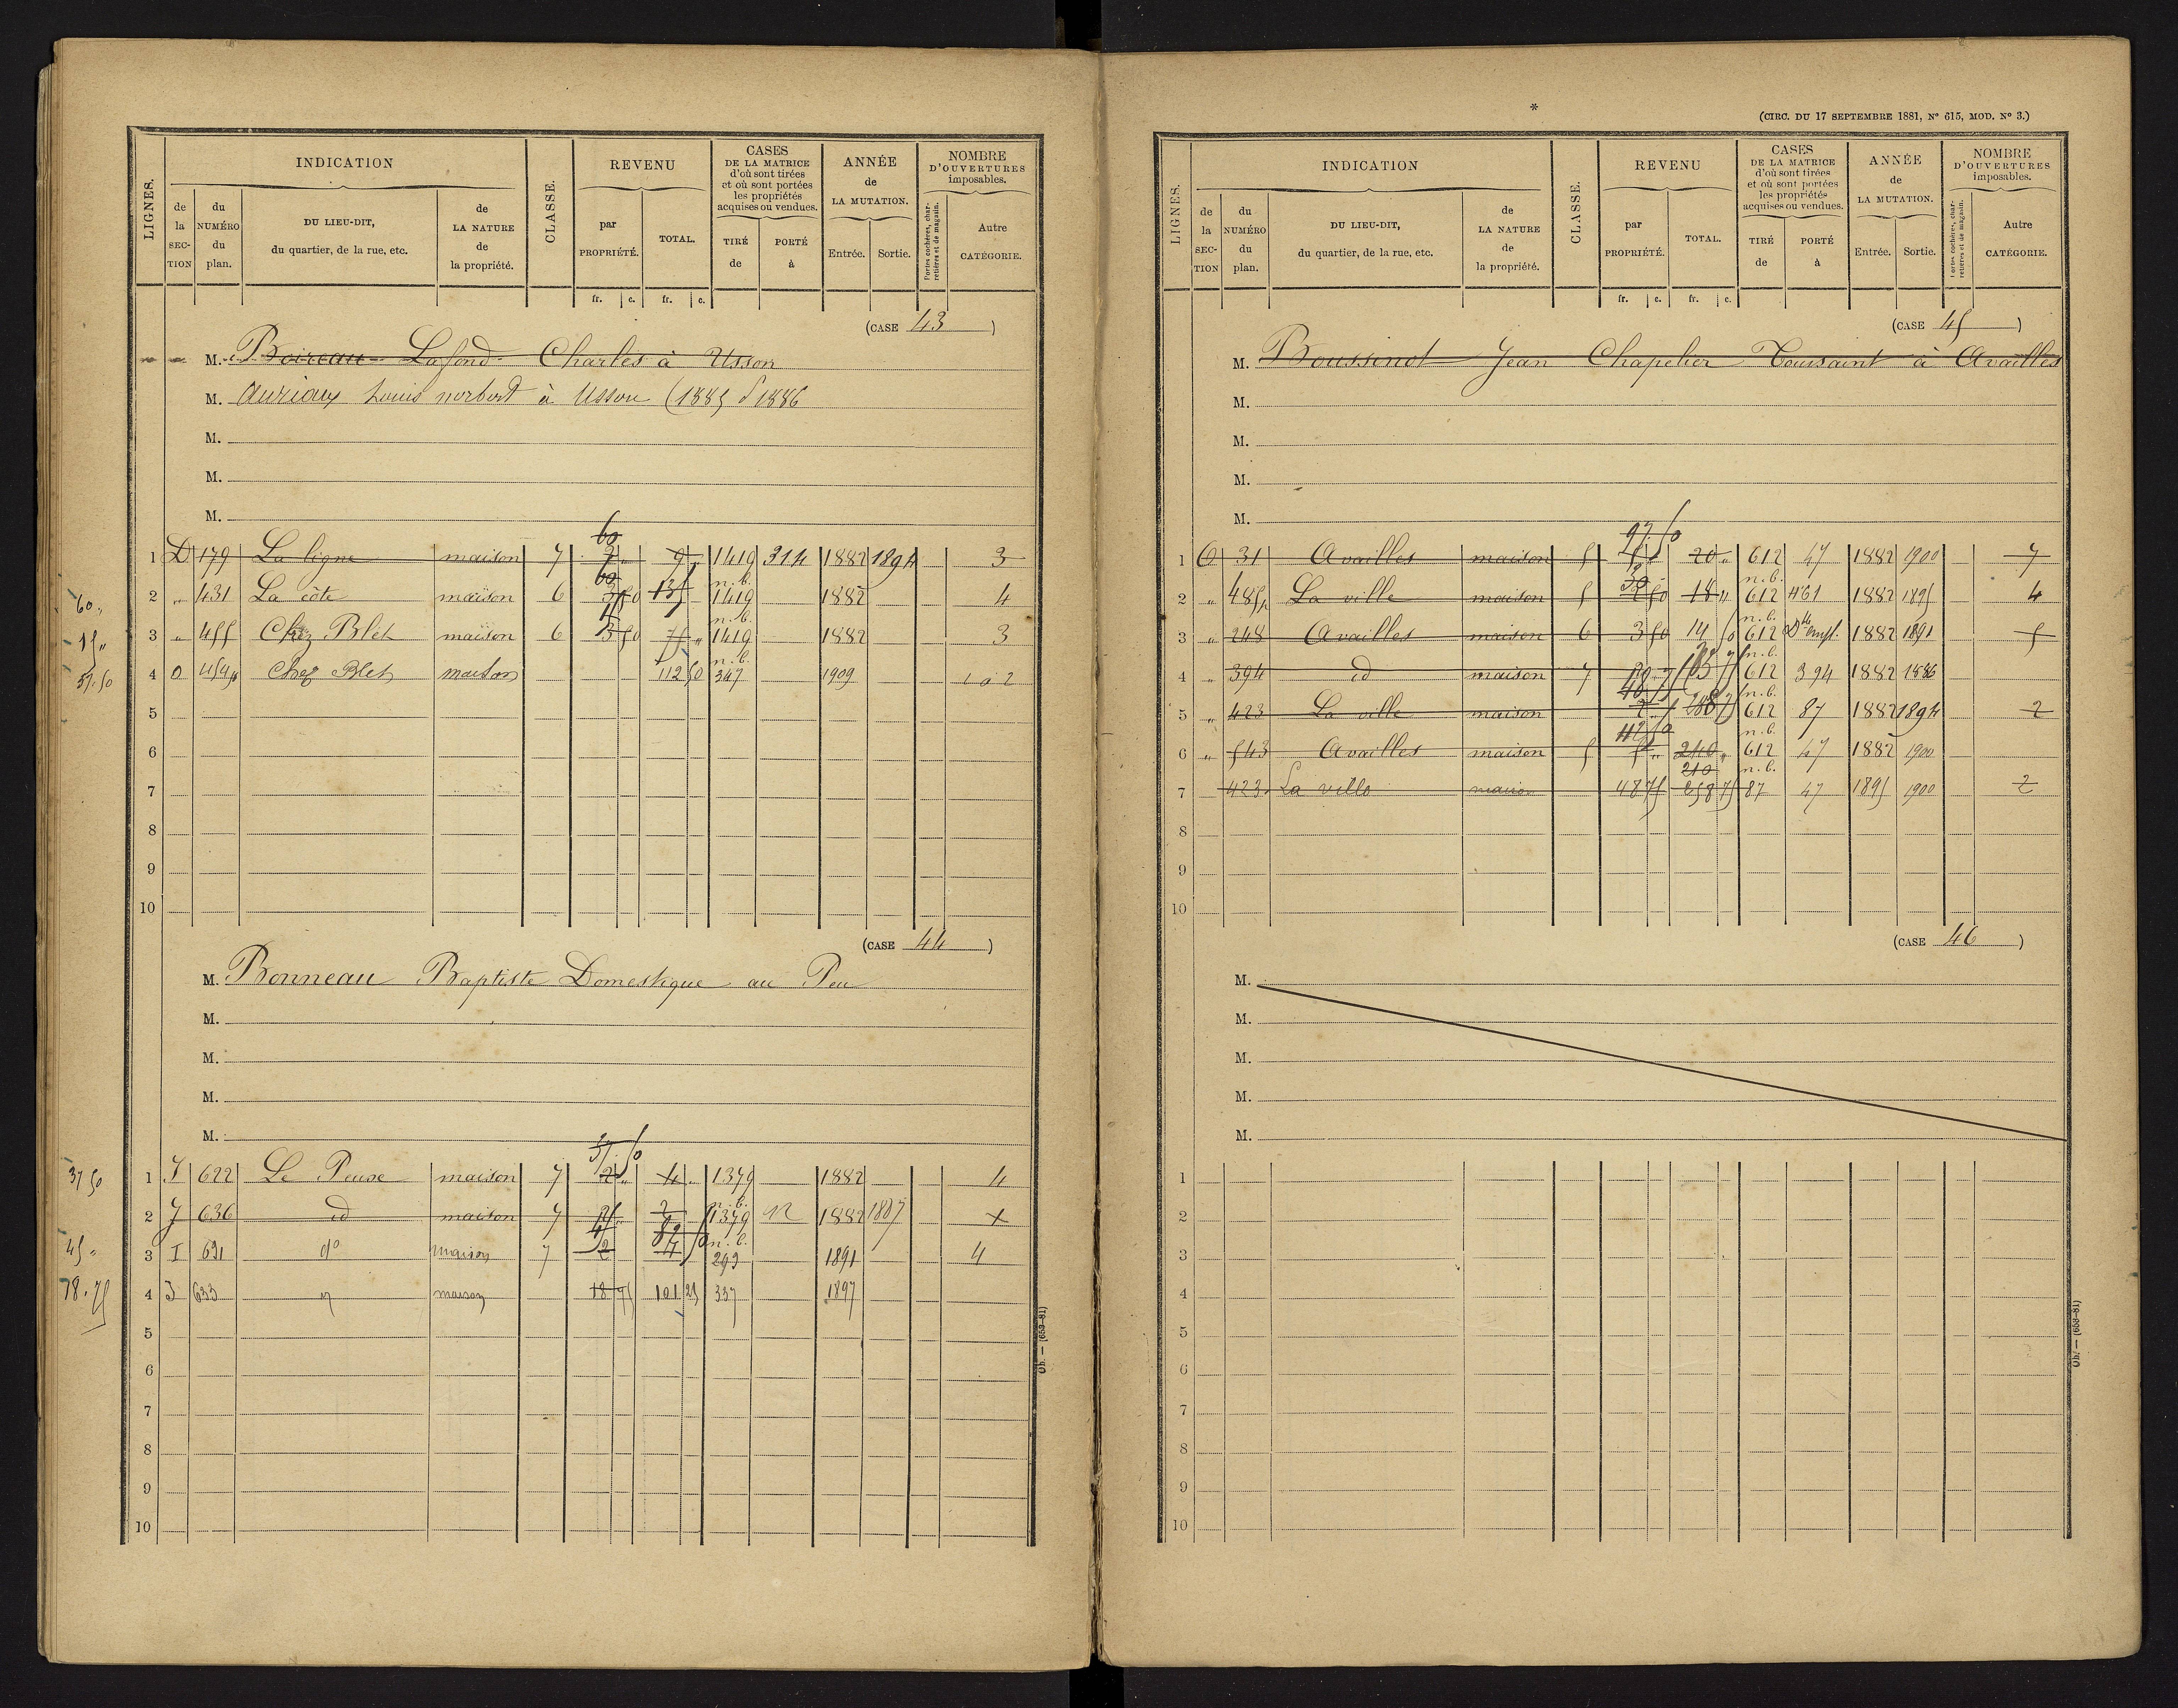 LIGNES.
INDICATION
de la SECTION
du NUMÉRO du plan.
DU LIEU-DIT, du quartier, de la rue, etc.
de LA NATURE de la propriété.
CLASSE.
REVENU
par PROPRIÉTÉ.
TOTAL.
fr. c. fr. c.
CASES DE LA MATRICE d'où sont tirées et où sont portées les propriétés acquises ou vendues.
TIRÉ de
PORTÉ à
ANNÉE de LA MUTATION.
Entrée. Sortie.
NOMBRE D'OUVERTURES imposables.
Portes cochères, charretières et de magasin.
Autre CATÉGORIE.
(CASE 43)
M. Boireau Lafond Charles à Usson
M. Auriaux Louis norbert à Usson (1885 1886
M.
M.
M.
60
1 D 179 La ligne maison 7 9 1419 314 1882 1894 3
60 n.b.
2 " 431 La côte maison 6 3 50 1419 1882 4
15 n.b.
3 " 455 Chez Blet maison 6 3 50 75 " 1419 1882 3
n.b.
4 454 Chez Blet maison 112 50 347 1909
5
6
7
8
9
10
60 "
15 "
37.50
(CASE 44)
M. Bonneau Baptiste Domestique au Peu
M.
M.
M.
M.
37.50
1 J 622 Le Peux maison 7 2 " 4 " 1379 1882 4
2 J 636 id maison 7 2 1379 12 1882 1887
n.b.
3 I 631 do maison 7 2 293 1891 4
4 633 maison 18 75 101 25 337 1897
5
6
7
8
9
10
37 50
45 "
18.75
Ob. — (653-81)
*
(CIRC. DU 17 SEPTEMBRE 1881, No 615, MOD. No 3.)
LIGNES.
INDICATION
de la SECTION
du NUMÉRO du plan.
DU LIEU-DIT, du quartier, de la rue, etc.
de LA NATURE de la propriété.
CLASSE.
REVENU
par PROPRIÉTÉ.
TOTAL.
fr. c. fr. c.
CASES DE LA MATRICE d'où sont tirées et où sont portées les propriétés acquises ou vendues.
TIRÉ de
PORTÉ à
ANNÉE de LA MUTATION.
Entrée. Sortie.
NOMBRE D'OUVERTURES imposables.
Portes cochères, charretières et de magasin.
Autre CATÉGORIE.
(CASE 45)
M. Boussinot Jean Chapelier Toussaint à Availles
M.
M.
M.
M.
97.50
1 31 Availles maison 5 20 " 612 47 1882 1900 7
30 n.b.
2 " 485 La ville maison 5 18 " 612 461 1882 1895 4
n.b.
3 " 248 Availles maison 6 3 50 14 50 612 1882 1891 5
n.b.
4 " 394 id maison 7 612 394 1882 1886
n.b.
5 " 423 La ville maison 612 87 1882 1894 2
112 50 n.b.
6 " 543 Availles maison 5 240 " 612 47 1882 1900
210 n.b.
7 423 La ville maison 48 75 258 75 87 47 1895 1900 2
8
9
10
(CASE 46)
M.
M.
M.
M.
M.
1
2
3
4
5
6
7
8
9
10
Ob. — (653-81)